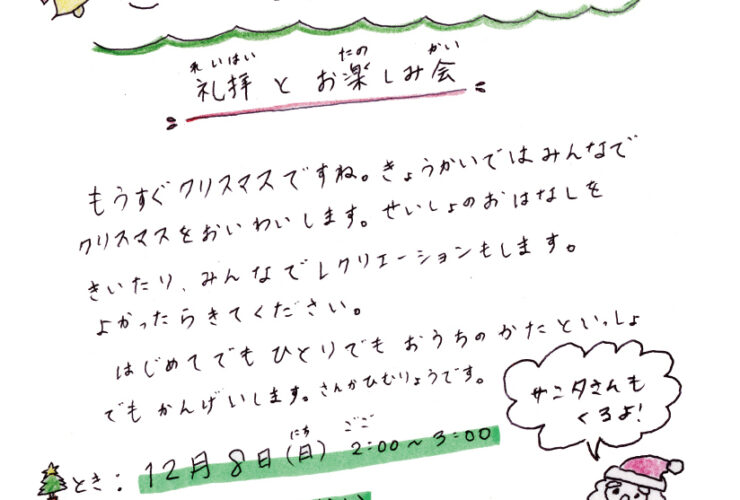 れいはい たの かい
礼拝とお楽しみ会
もうすぐクリスマスですね。きょうかいではみんなで
クリスマスをおいわいします。せいしょのおはなしを
きいたり、みんなでレクリエーションもします。
よかったらきてください。
はじめてでもひとりでもおうちのかたといっしょ
でもかんげいします。さんかひむりょうです。
サンタさんも
くるよ!
にち ごご
とき:12月8日(日) 2:00~3:00